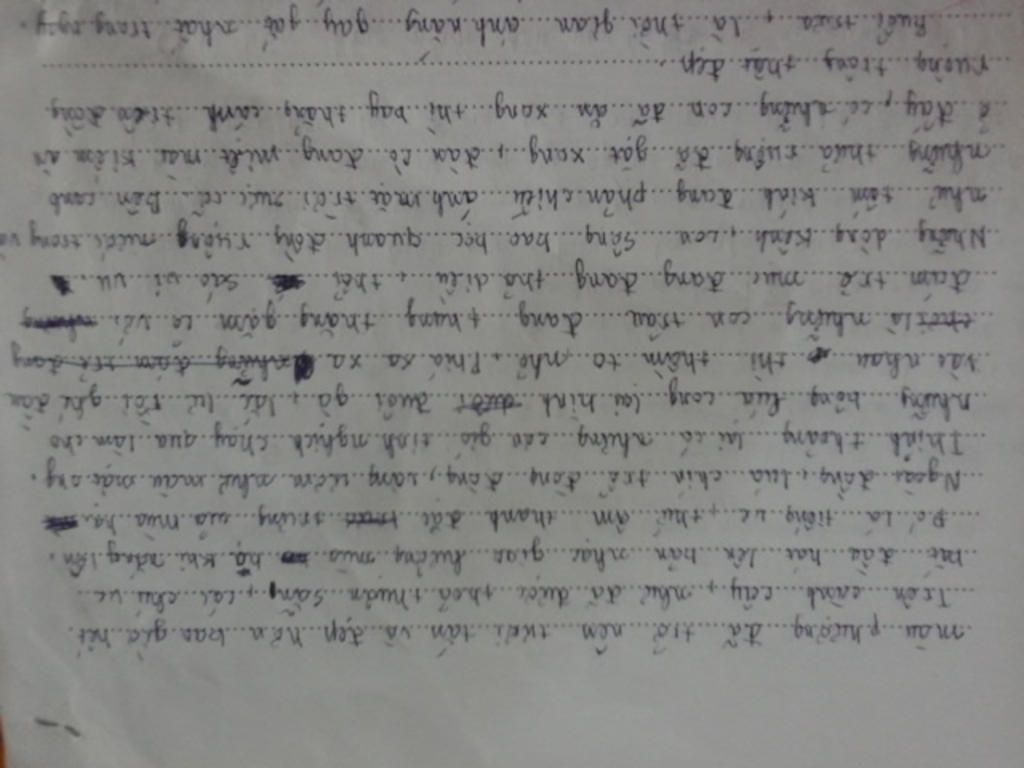 màu phượng đã trở nên tươi tắn và đẹp hơn bao giờ hết.
Trên cành cây, như đã được thoả thuận sẵn, cái chú ve
bắt đầu hát lên bản nhạc giao hưởng mùa hạ khi nắng lên.
Đó là tiếng ve, thứ âm thanh đặc trưng của mùa hạ.
Ngoài đồng, lúa chín trổ đòng đòng, vàng ươm như màu mật ong.
Thỉnh thoảng lại có những cơn gió tinh nghịch chạy qua làm cho
những bông lúa cong lại hình đuôi gà, lắc lư rồi ghé đầu
vào nhau thì thầm to nhỏ. Phía xa xa những đám trẻ đang
là những con trâu đang thung thăng gặm cỏ với
đám trẻ mục đang đang thả diều, thổi sáo vi vu.
Những dòng kênh, con sông bao bọc quanh đồng ruộng mười trong và
như tấm kính đang phản chiếu ánh mặt trời rực rỡ. Bên cạnh
những thửa ruộng đã gặt xong, đàn cò đang miệt mài kiếm ăn
ở đấy, có những con đã ăn xong thì bay thẳng cánh trên đồng
ruộng trông thật đẹp.
Buổi trưa, là thời gian ánh nắng gay gắt nhất trong ngày.